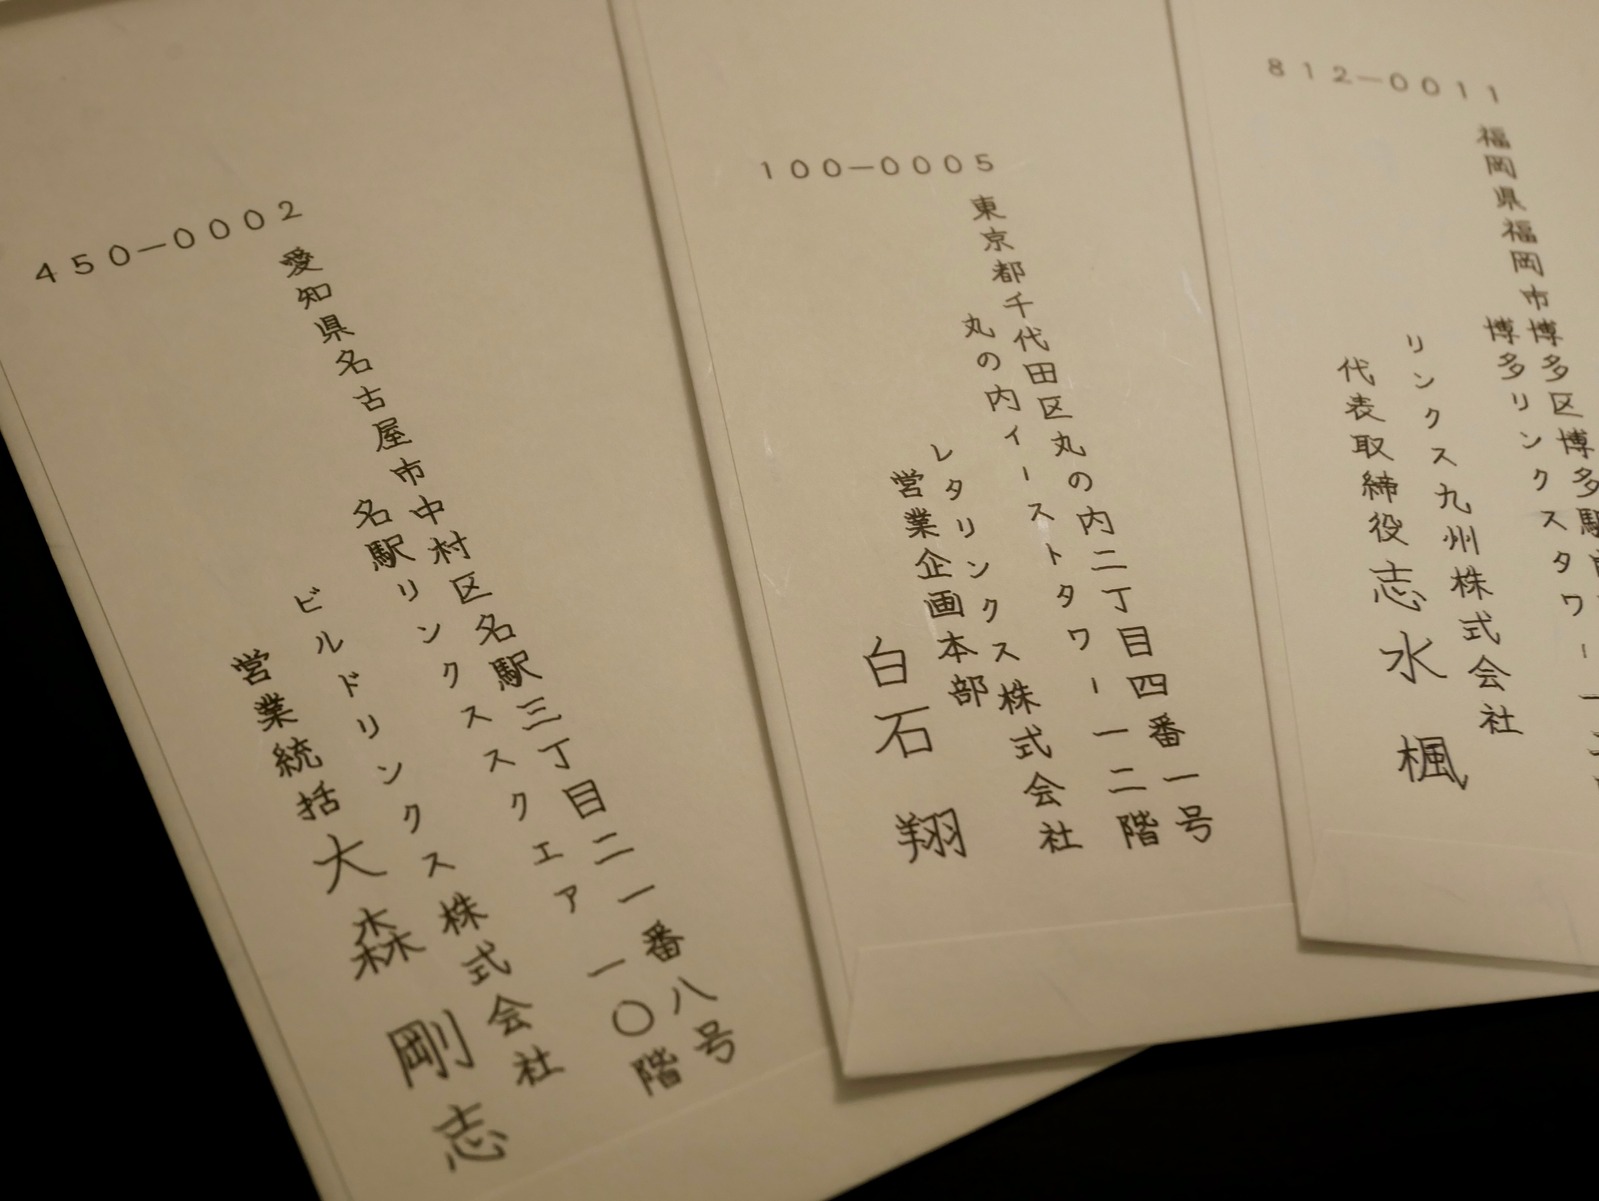 450-0002
愛知県名古屋市中村区名駅三丁目二一番八号
名駅リンクススクエア 一〇階
ビルドリンクス株式会社
営業統括 大森 剛志
100-0005
東京都千代田区丸の内二丁目四番一号
丸の内イーストタワー一二階
レタリンクス株式会社
営業企画本部
白石 翔
812-0011
福岡県福岡市博多区博多駅
博多リンクスタワー
リンクス九州株式会社
代表取締役 志水 楓